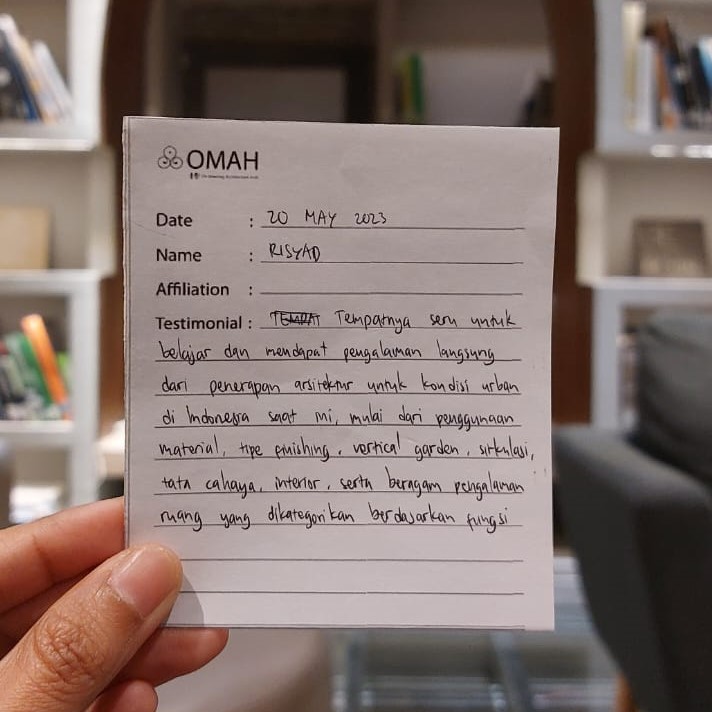 OMAH
Date : 20 MAY 2023
Name : RISYAD
Affiliation :
Testimonial : Tempatnya seru untuk
belajar dan mendapat pengalaman langsung
dari penerapan arsitektur untuk kondisi urban
di Indonesia saat ini, mulai dari penggunaan
material, tipe finishing, vertical garden, sirkulasi,
tata cahaya, interior, serta beragam pengalaman
ruang yang dikategorikan berdasarkan fungsi